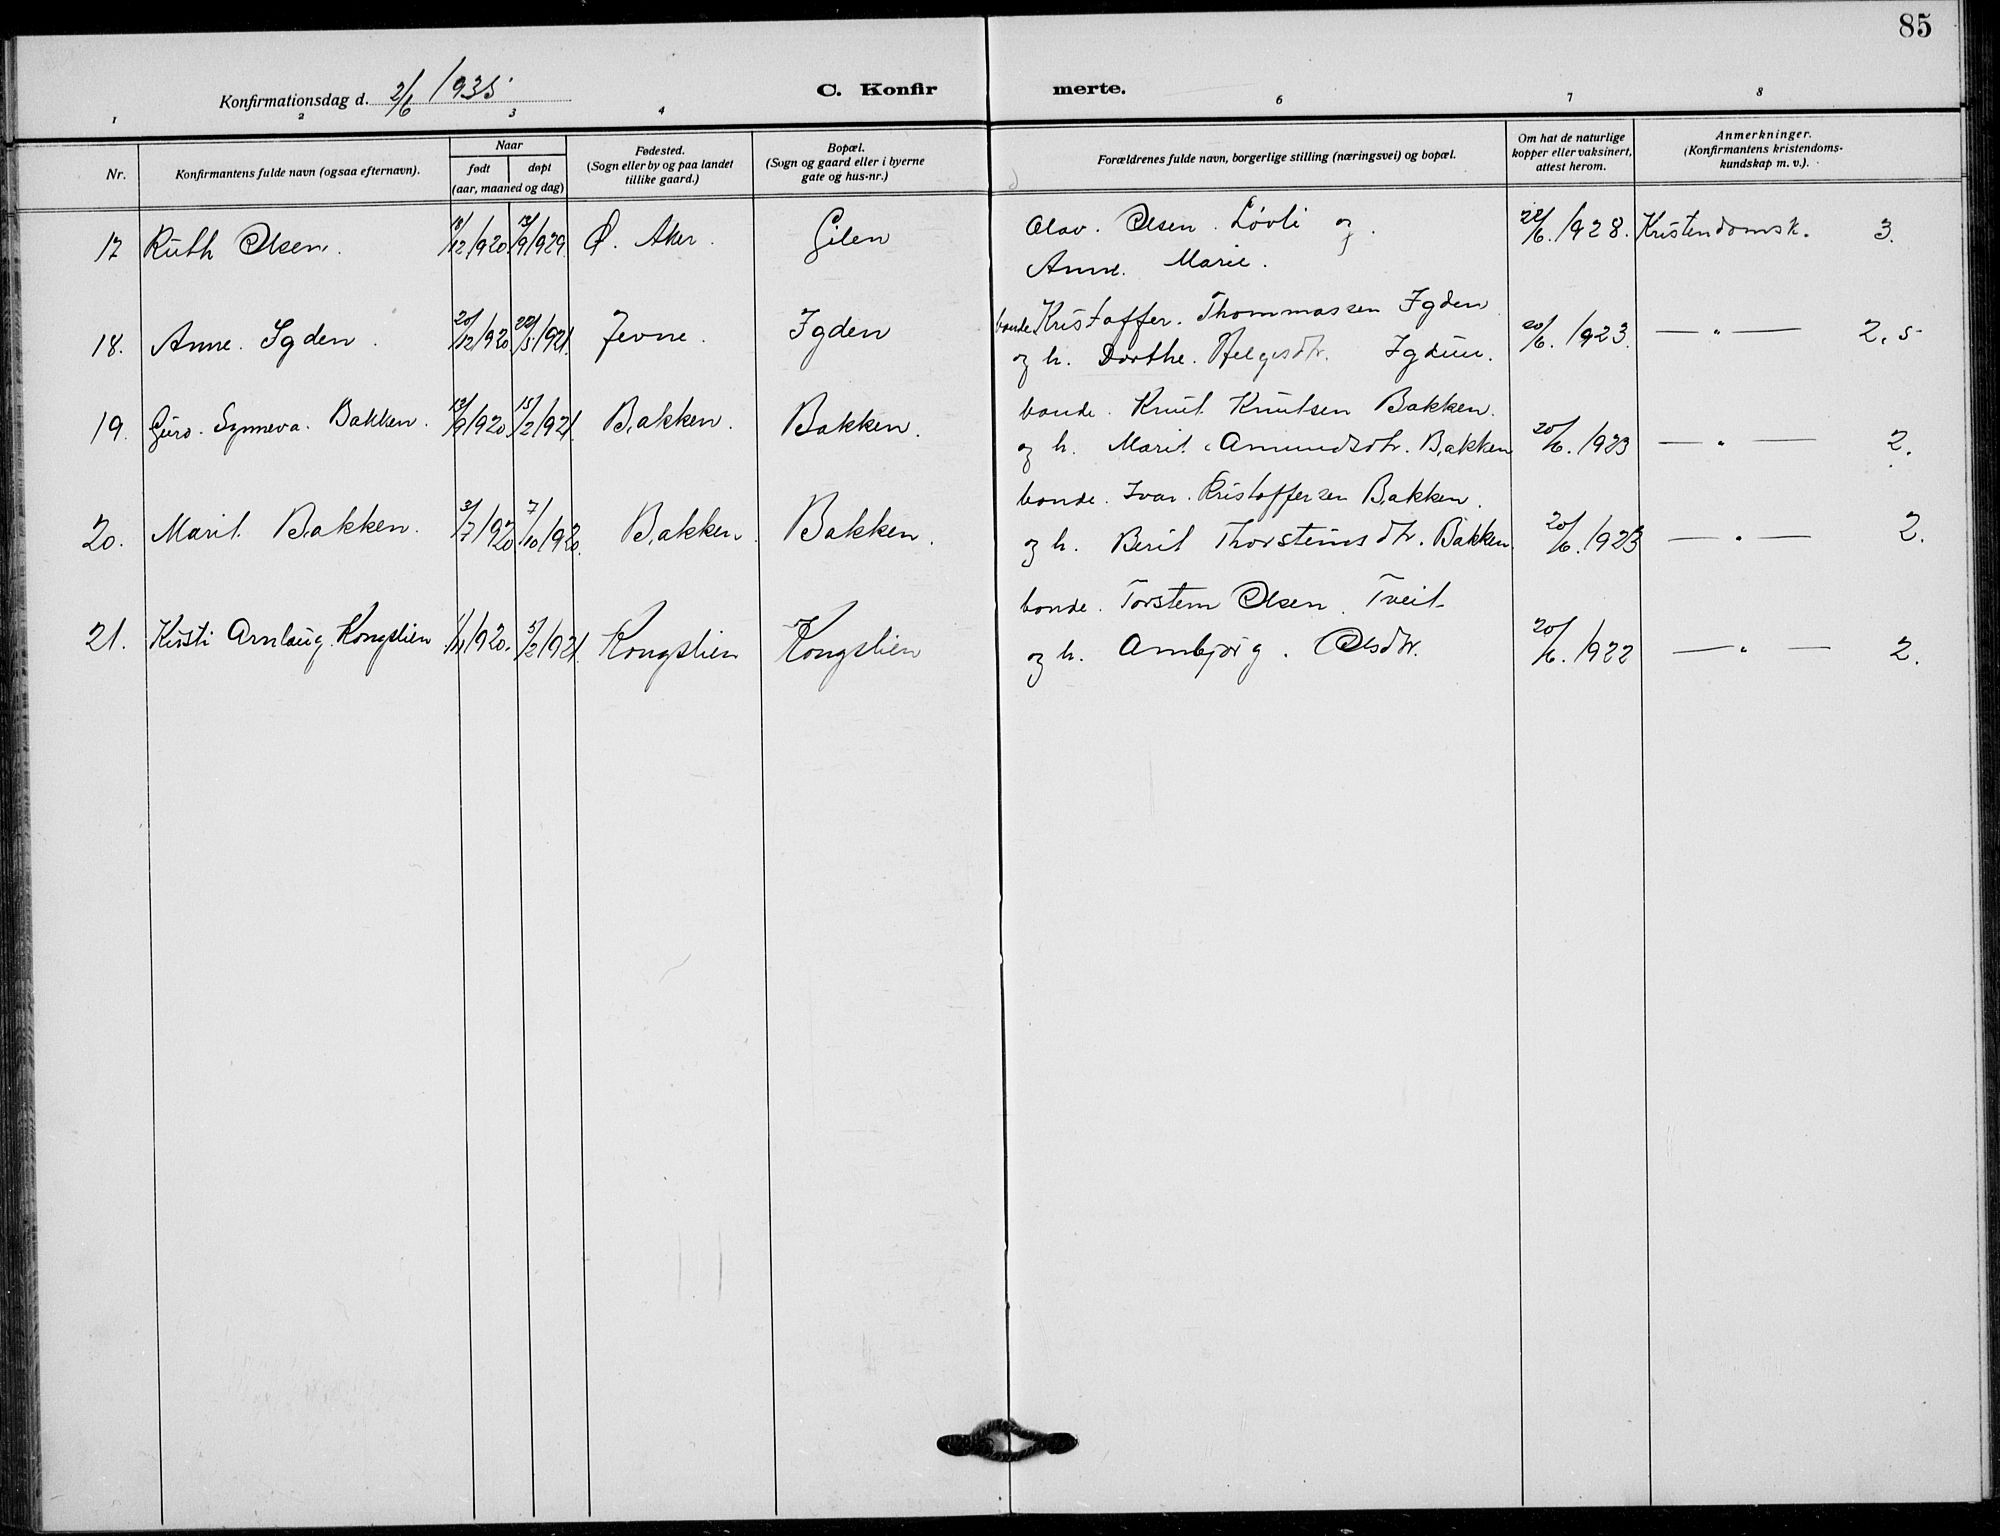 85
Konfirmationsdag d. 2/6 1935
C. Konfir merte.
1 2 3 4 6 7 8
Nr.
Konfirmantens fulde navn (ogsaa efternavn).
Naar
født døpt
(aar, maaned og dag)
Fødested.
(Sogn eller by og paa landet
tillike gaard.)
Bopæl.
(Sogn og gaard eller i byerne
gate og hus-nr.)
Forældrenes fulde navn, borgerlige stilling (næringsvei) og bopæl.
Om hat de naturlige
kopper eller vaksinert,
attest herom.
Anmerkninger.
(Konfirmantens kristendoms-
kundskap m. v.).
17 Ruth Olsen. /12 1920 /9 1929. Ø. Aker. Gilen Olav. Olsen. Løvli og 22/6. 1928. Kristendomsk. 3.
Anne. Marie.
18. Anne. Igden. 20/12 1920 22/5 1921. Jevne. Igden bonde Kristoffer. Thommassen Igden 20/6. 1923. — " — 2,5
og h. Dorthe. Helgesdtr. Igden.
19. Guro. Synneva. Bakken. 13/9 1920 15/2 1921. Bakken. Bakken. bonde. Knut Knutsen Bakken.
og h. Marit. Amundsdtr. Bakken 20/6. 1923 — " — 2.
20. Marit. Bakken. 3/7 1920 7/10 1920. Bakken. Bakken. bonde. Ivar. Kristoffersen Bakken.
og h. Berit Thorsteinsdtr. Bakken. 20/6. 1923 — " — 2.
21. Kirsti Arnlaug. Kongslien 1/11 1920. 5/2 1921. Kongslien Kongslien bonde. Torstein Olsen. Tveit
og h. Arnbjørg. Olsdtr. 20/6. 1922 — " — 2.